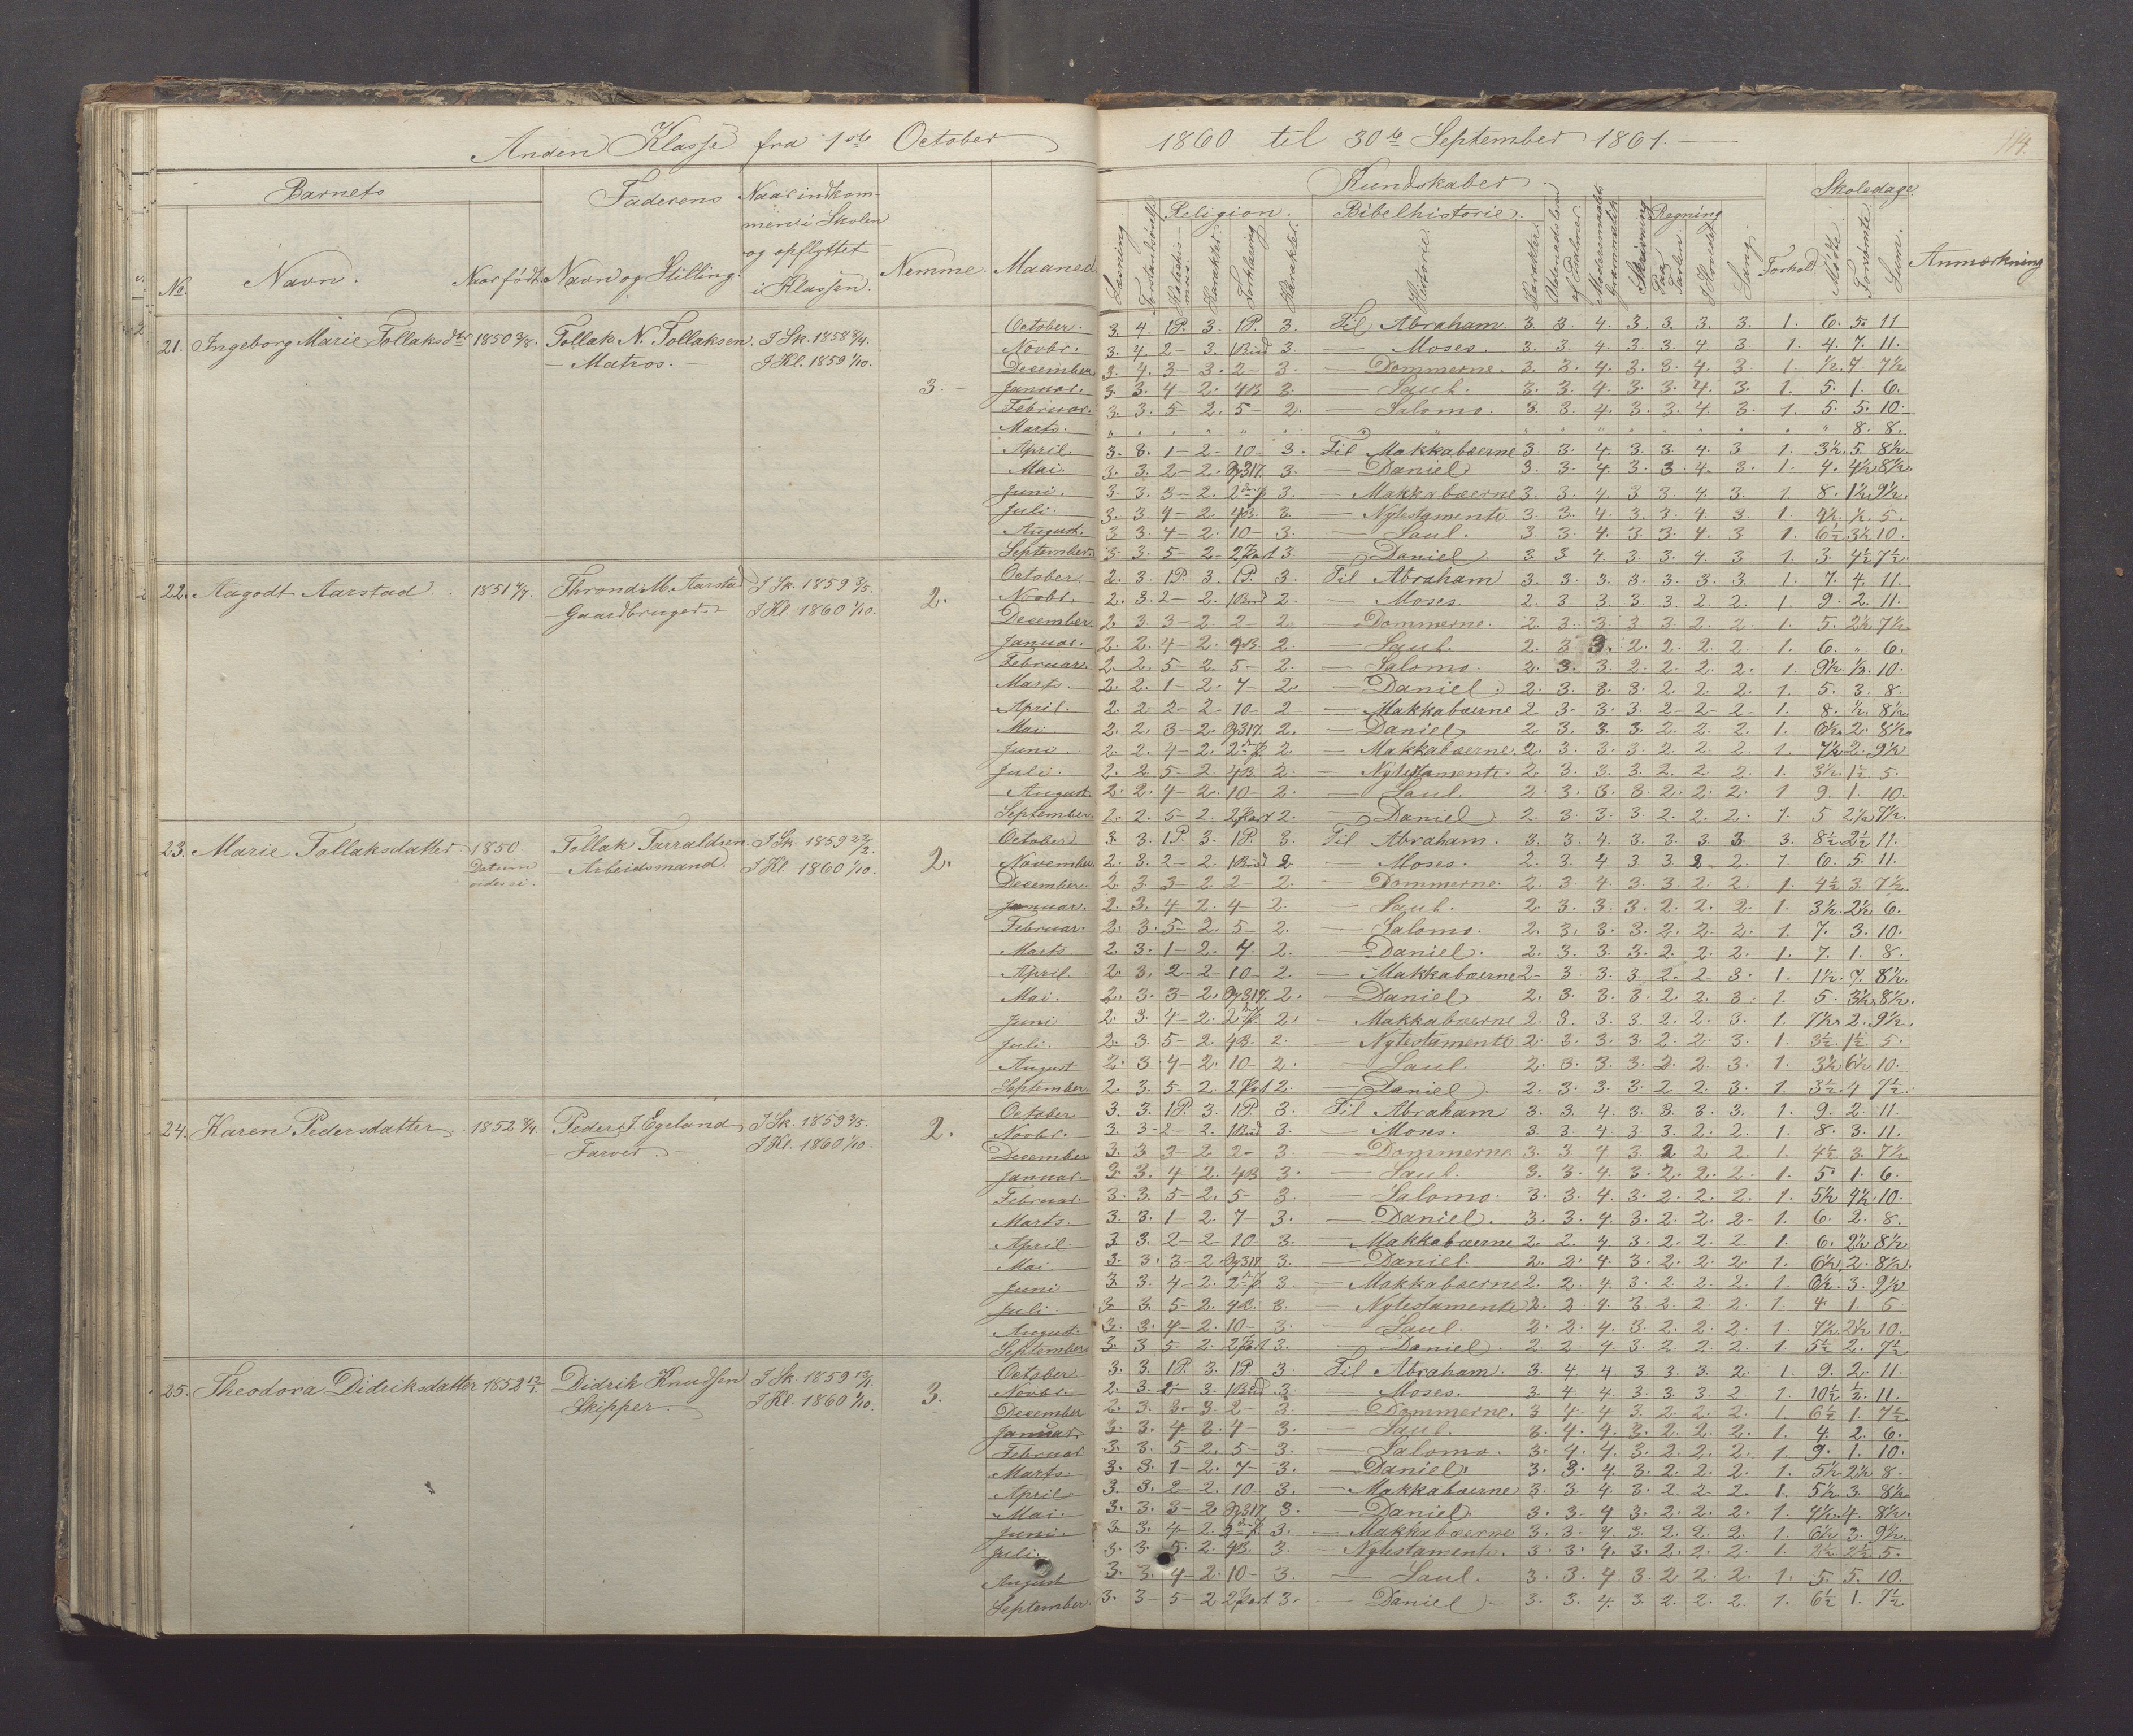 Anden Klasse fra 1ste October 1860 til 30te September 1861.
114.
Barnets
Faderens
Naar indkommen i Skolen og opflyttet i Klassen.
Nemme.
Maaned
No. Navn. Naar født. Navn og Stilling.
Kundskaber.
Skoledage
Læsning
Religion.
Bibelhistorie.
Forklaring
Karakter.
Historie.
Karakter.
Skrivning
Regning
Sang.
Forhold
Mødte.
Forsømte.
Sum.
Anmærkning
21. Ingeborg Marie Tollaksdtr 1850 Tollak N. Tollaksen I Sk. 1858
- Matros. - I Kl. 1859 1/10.
3.
October. 3. 4. 1P. 3. 1P. 3. Til Abraham. 3. 3. 4. 3. 3. 3. 3. 1. 6. 5. 11
Novbr. 3. 4. 2- 3. 1Bud 3. - Moses. 3. 3. 4. 3. 3. 4 3. 1. 4. 7. 11.
December 3. 4. 3- 3. 2- 3. - Dommerne. 3. 3. 4. 3. 3. 4. 3. 1. 1/2. 7. 7 1/2
Januar. 3. 3. 4- 2. 4B 3. - Saul. 3. 3. 4. 3. 3. 4. 3. 1. 5. 1. 6.
Februar. 3. 3. 5- 2. 5- 2. - Salomo. 3. 3. 4. 3. 3. 4. 3. 1. 5. 5. 10.
Marts. " " " " " " " " 8. 8.
April. 3. 3. 1- 2- 10- 3. Til Makkabæerne 3. 3. 4. 3. 3. 4. 3 1. 3 1/2. 5. 8 1/2.
Mai. 3. 3. 2- 2. 3. - Daniel 3. 3. 4. 3. 3. 4. 3. 1. 4. 4 1/2 8 1/2.
Juni. 3. 3. 3- 2. 3. - Makkabæerne 3. 3. 4. 3 3. 4. 3. 1. 8. 1 1/2 9 1/2.
Juli. 3. 3. 4- 2. 4B. 3. - Nytestamente 3. 3. 4. 3. 3. 4. 3. 1. 4 1/2. 1/2. 5.
August. 3 3. 4- 2. 10- 3. - Saul. 3. 3. 4. 3. 3. 4. 3 1. 6 1/2 3 1/2 10.
September 3. 3. 5- 2- 3 - Daniel. 3. 3 4 3. 3. 4. 3 1. 3. 4 1/2 7 1/2.
22. Aagodt Aarstad. 1851 Thrond M. Aarstad I Sk. 1859
Gaardbruger. I Kl. 1860 1/10.
2.
October. 2. 3. 1P. 3. 1P. 3. Til Abraham 3. 3. 3. 3. 3. 3. 3. 1. 7. 4. 11.
Novbr. 2. 3. 2- 2. 1Bud 2. Moses 2. 3 3. 3. 3. 2 2. 1. 9. 2. 11.
December. 2. 3 3- 2. 2- 2. - Dommerne. 2. 3. 3. 3 3. 2. 2. 1. 5. 2 1/2 7 1/2
Januar. 2. 2. 4- 2. 4B. 2. - Saul. 2. 3 3. 2. 2. 2. 2. 1. 6. " 6.
Februar. 2. 2. 5- 2. 5- 2. - Salomo. 2. 3. 3. 2. 2. 2. 2. 1. 9 1/2. 1/2. 10.
Marts. 2. 2. 1- 2. 7- 2. - Daniel. 2. 3. 3. 3. 2. 2. 2. 1. 5. 3. 8.
April. 2. 2 2- 2- 10- 2 - Makkabæerne 2 3. 3. 3. 2- 2- 2- 1. 8. 1/2. 8 1/2.
Mai. 2. 2. 3- 2. 2. - Daniel 2. 3. 3. 3 2. 2. 2. 1. 6 1/2 2. 8 1/2.
Juni. 2. 2. 4- 2. 2. - Makkabæerne. 2. 3. 3. 3. 2. 2. 2. 1. 7 1/2 2. 9 1/2
Juli. 2. 2 5- 2 4B. 2. - Nytestamente. 2. 3. 3. 3. 2. 2. 2. 1. 3 1/2. 1 1/2 5.
August. 2. 2. 4- 2. 10- 2. - Saul. 2. 3. 3. 3 2. 2. 2. 1 9. 1. 10.
September. 2. 2. 5- 2. 2. - Daniel 2. 3. 3. 3. 2. 2. 2. 1. 5 2 1/2 7 1/2.
23. Marie Tollaksdatter 1850. Tollak Torraldsen I Sk. 1859
Datum - Arbeidsmand. I Kl. 1860 1/10.
2.
October 3. 3. 1P. 3. 1P. 3. Til Abraham. 3. 3. 4. 3. 3. 3. 3. 3. 8 1/2 2 1/2 11.
November. 2. 3. 2- 2. 1Bud 2. - Moses. 2. 3. 4. 3 3 2 2. 1 6. 5. 11.
December. 2. 3. 3- 2 2- 2. - Dommerne. 2. 3. 4. 3. 3. 2. 2. 1. 4 1/2 3. 7 1/2.
Januar. 2. 3. 4- 2. 4- 2. - Saul. 2. 3. 3. 3. 2. 2. 2. 1. 3 1/2. 2 1/2 6.
Februar. 2. 3. 5- 2. 5- 2. - Salomo. 2. 3. 3. 3. 2. 2. 2. 1. 7. 3. 10.
Marts 2. 3. 1- 2. 7. 2. - Daniel. 2. 3. 3. 3. 2. 2. 2. 1. 7. 1. 8.
April 2. 3. 2- 2- 10- 2. - Makkabæerne 2- 3. 3. 3. 2. 2 3. 1. 1 1/2. 7. 8 1/2.
Mai. 2. 3. 3- 2. 2. - Daniel 2. 3. 3. 3. 2. 2. 3. 1. 5. 3 1/2. 8 1/2.
Juni 2. 3. 4- 2. 2. - Makkabæerne 2. 3. 3. 3. 2. 2. 3. 1. 7 1/2 2. 9 1/2.
Juli. 2. 3. 5- 2. 4B. 2. - Nytestamente 2. 3. 3. 3. 2. 2. 3. 1. 3 1/2. 1 1/2 5.
August 2. 3 4- 2. 10- 2. - Saul. 2. 3. 3. 3. 2. 2. 3. 1. 3 1/2 6 1/2 10.
September. 2. 3. 5- 2. 2. - Daniel. 2. 3. 3. 3. 2 2. 3. 1. 3 1/2. 4 7 1/2.
24. Karen Pedersdatter. 1852 Peder J. Egeland I Sk. 1859
- Farver. - I Kl. 1860 1/10.
2.
October 3. 3. 1P. 3. 1P. 3. Til Abraham 3. 3. 4. 3. 3. 3. 3. 1. 9. 2. 11.
Novbr. 3. 3- 2- 2. 1Bud 3. - Moses. 3. 3. 4. 3. 3. 2. 2. 1. 8. 3. 11.
December 3. 3 3- 2. 2- 3. - Dommerne. 3. 3 4 3. 2 2. 2. 1. 4 1/2 3. 7 1/2
Januar. 3. 3. 4- 2. 4B 3. - Saul. 3. 3. 4. 3. 2. 2. 2. 1. 5. 1. 6.
Februar. 3. 3. 5- 2. 5- 3. - Salomo. 3. 3. 4. 3. 2. 2. 2. 1. 5 1/2 4 1/2. 10.
Marts. 3. 3. 1- 2. 7- 3. - Daniel. 3. 3. 4. 3. 2. 2. 2. 1. 6. 2. 8.
April. 3 3. 2- 2- 10- 3. - Makkabæerne 2. 2. 4. 3. 2. 2. 2 1. 6. 2 1/2 8 1/2
Mai. 3. 3. 3- 2. 3. - Daniel. 2. 2. 4. 3. 2. 2. 2. 1. 6 1/2. 2. 8 1/2.
Juni 3. 3. 4- 2. 3 - Makkabæerne 2. 2. 4 3. 2. 2. 2. 1. 6 1/2. 3. 9 1/2
Juli. 3. 3. 5- 2. 4B. 3. - Nytestamente 2. 2. 4. 3. 2. 2. 2. 1. 4. 1. 5.
August. 3. 3. 4- 2. 10- 3. - Saul. 2. 2. 4. 3. 2. 2. 2. 1. 7 1/2. 2 1/2 10.
September 3. 3 5- 2. 3. - Daniel. 2. 2. 4 3. 2. 2. 2. 1. 5 1/2 2. 7 1/2
25. Theodora Didriksdatter 1852 Didrik Knudsen I Sk. 1859
Skipper. I Kl. 1860 1/10.
3.
October 3. 3. 1P. 3. 1P. 3. Til Abraham. 3. 4 4 3 3. 3. 2. 1. 9. 2. 11.
Novbr. 2. 3. 2- 3. 1Bud 3. - Moses. 3. 4. 4. 3. 3. 3. 2 1. 10 1/2 1/2. 11.
December 2. 3. 3- 3. 2- 3. - Dommerne. 3. 4- 4. 3. 2. 2. 2. 1. 6 1/2 1. 7 1/2
Januar. 3. 3. 4 3. 4- 3. - Saul. 3. 4. 4. 3. 2. 2. 2. 1. 4. 2. 6.
Februar 3. 3. 5- 2. 5- 3. - Salomo. 3. 4. 4. 3. 2. 2. 2. 1. 9. 1. 10.
Marts. 3. 3. 1- 2. 7- 3. - Daniel. 3. 3. 4. 3. 2. 2. 2. 1. 5 1/2 2 1/2 8.
April 3. 3. 2- 2. 10- 3. - Makkabæerne 3. 3. 4. 3. 2 2 2. 1. 5 1/2. 3. 8 1/2
Mai. 3. 3. 3- 2. 3. - Daniel. 3. 3- 4 3. 2. 2. 2. 1. 4 1/2. 4. 8 1/2.
Juni. 3. 3. 4- 2. 3. - Makkabæerne 3. 3. 4. 3. 2. 2. 2. 1. 6 1/2 3. 9 1/2.
Juli. 3. 3. 5. 2. 4B. 3. - Nytestamente. 3. 3. 4. 3. 2. 2. 2. 1. 2 1/2. 2 1/2 5.
August 3. 3. 4- 2. 10- 3. - Saul. 3. 3. 4. 3 2 2. 2. 1. 5. 5. 10.
September. 3. 3- 5- 2 3. - Daniel. 3. 3. 4. 3. 2. 2. 2. 1. 6 1/2 1. 7 1/2